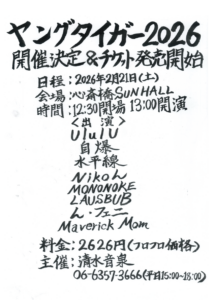 ヤングタイガー2026
開催決定&チケット発売開始
日程：2026年2月21日(土)
会場：心斎橋SUNHALL
時間：12:30開場 13:00開演
<出演>
UlulU
自爆
水平線
Nikoん
MONONOKE
LAUSBUB
ん・フェニ
Maverick Mom
料金：2626円(フロフロ価格)
主催：清水音泉
06-6357-3666(平日15:00~18:00)